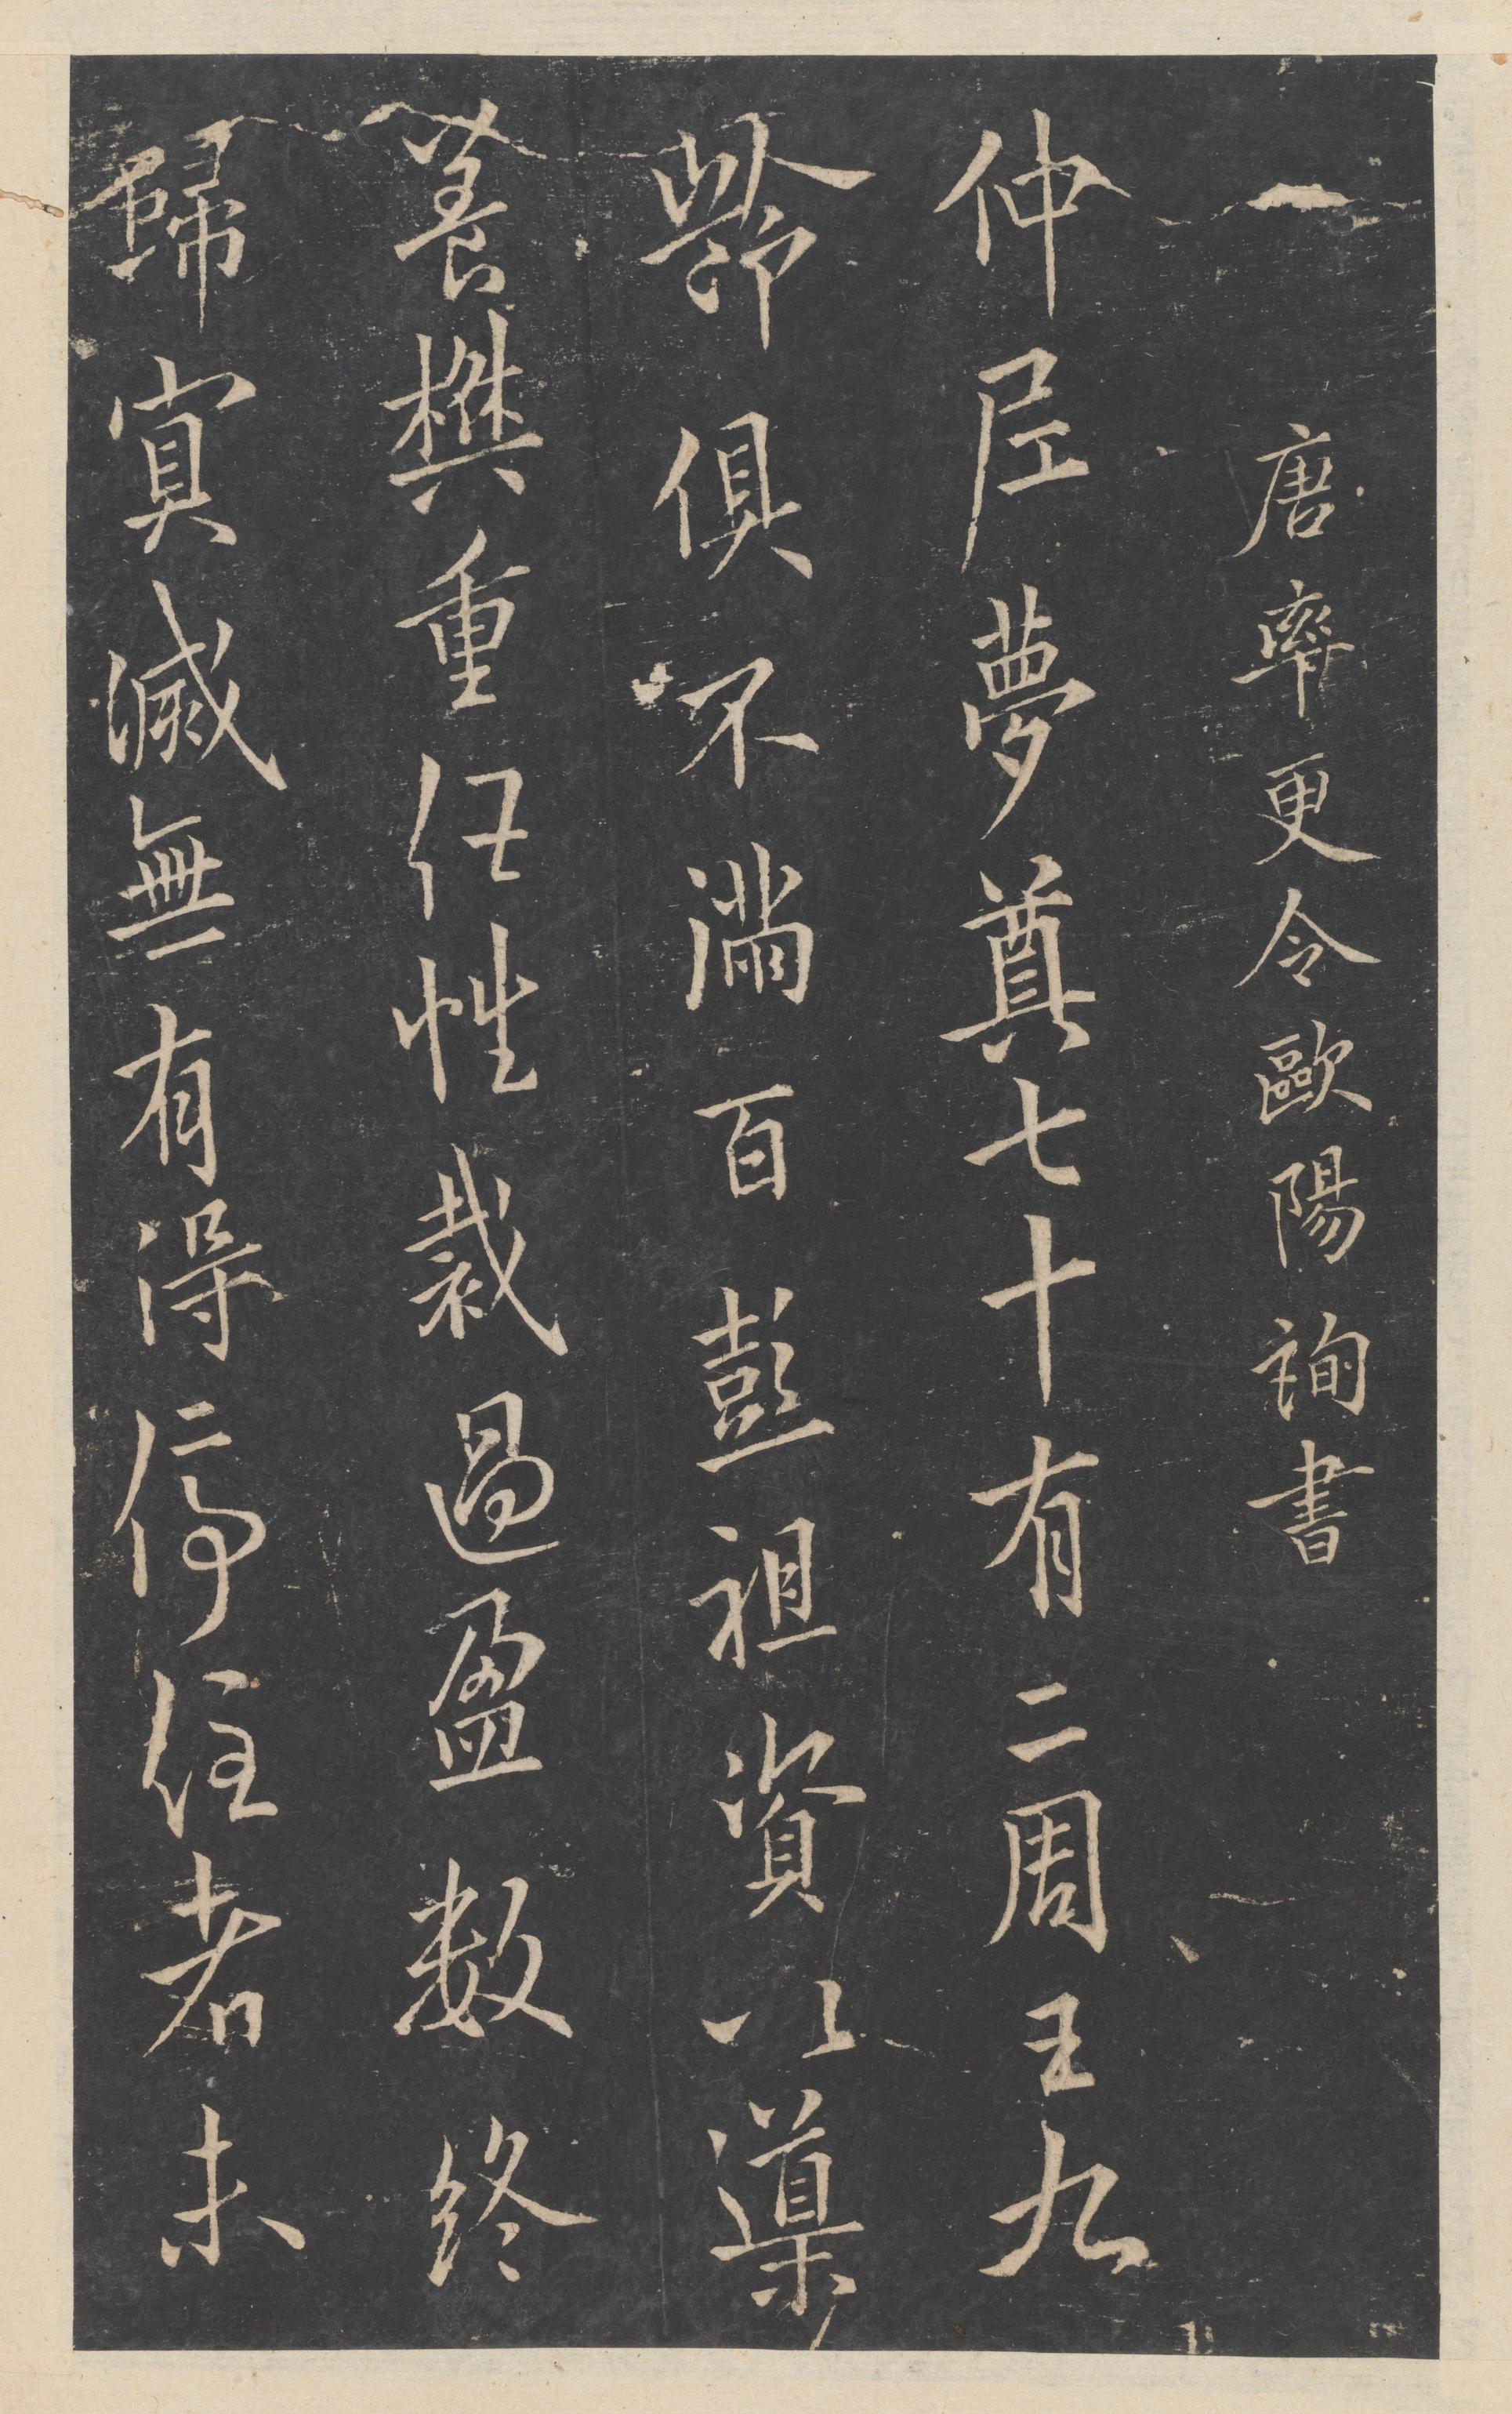 唐率更令歐陽詢書
仲尼夢奠七十有二周王九
齡俱不滿百彭祖資以導
養樊重任性裁過盈數終
歸冥滅無有得停住者未